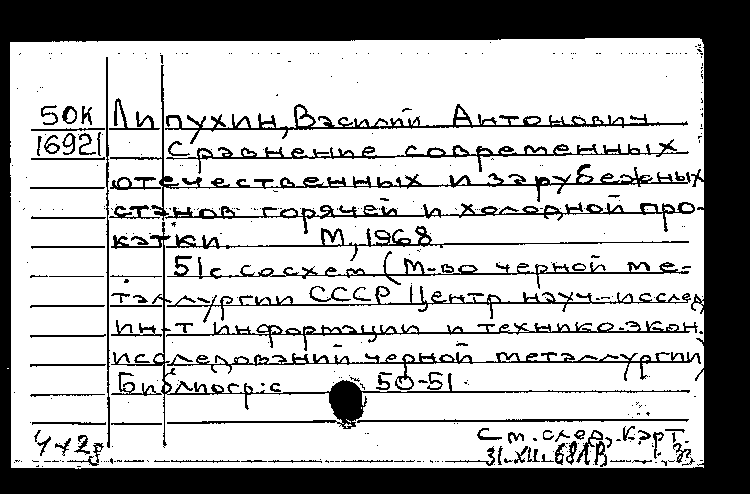 50К Липухин, Василий Антонович
16921 Сравнение современных
отечественных и зарубежных
станов горячей и холодной про-
катки. М, 1968.
51с. со схем (М-во черной ме-
таллургии СССР Центр науч-исслед
ин-т информации и технико-экон.
исследований черной металлургии)
Библиогр: с 50-51.
См. след. карт.
31.XII.68